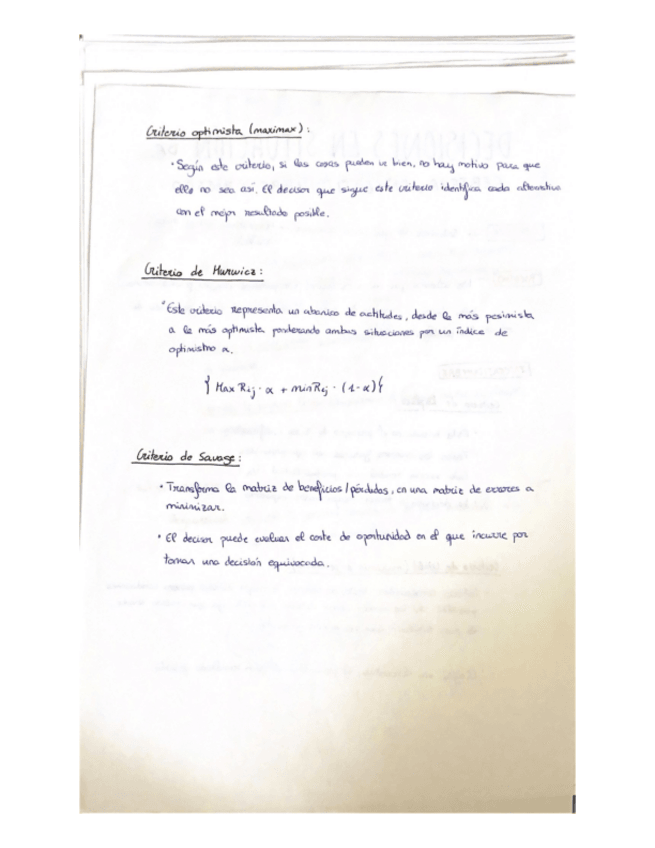 Criterio optimista (maximax):
· Según este criterio, si las cosas pueden ir bien, no hay motivo para que
ello no sea así. El decisor que sigue este criterio identifica cada alternativa
con el mejor resultado posible.
Criterio de Hurwicz:
· Este criterio representa un abanico de actitudes, desde la más pesimista
a la más optimista ponderando ambas situaciones por un índice de
optimismo α.
{ Max Rij · α + min Rij · (1-α) }
Criterio de Savage:
· Transforma la matriz de beneficios/pérdidas, en una matriz de errores a
minimizar.
· El decisor puede evaluar el coste de oportunidad en el que incurre por
tomar una decisión equivocada.